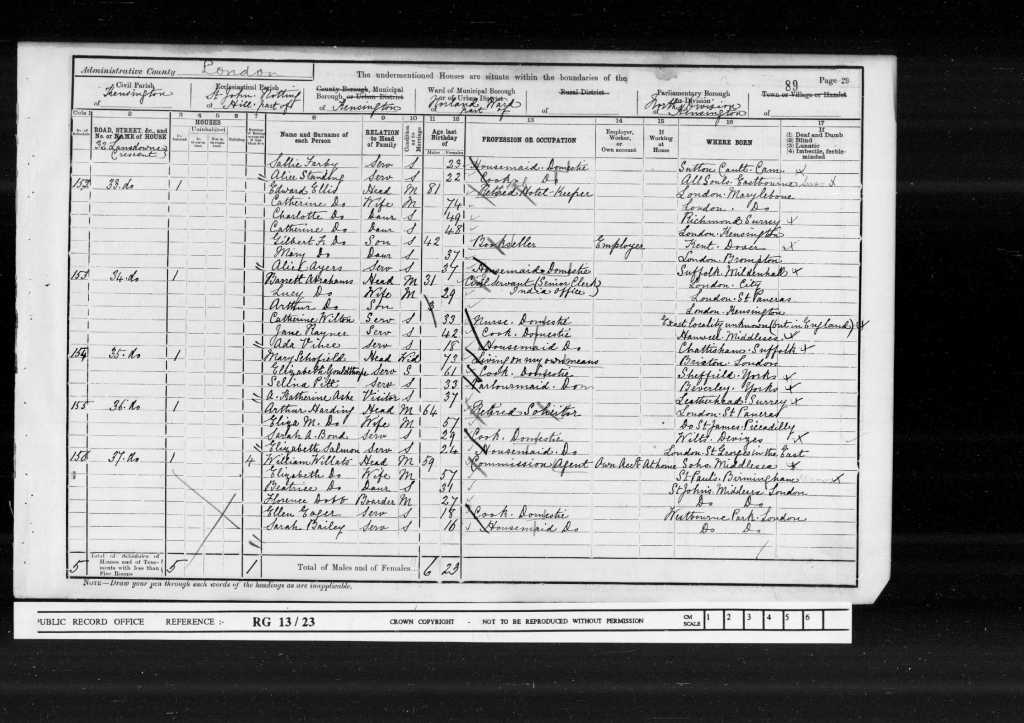 Administrative County London
The undermentioned Houses are situate within the boundaries of the
89 Page 29
Civil Parish of Kensington
Ecclesiastical Parish of St. John Notting Hill. part of
County Borough, Municipal Borough, or Urban District of Kensington
Ward of Municipal Borough or of Urban District Norland Ward part of
Rural District of
Parliamentary Borough or Division of North Division Kensington
Town or Village or Hamlet of
Cols. 1 2 3 4 5 6 7 8 9 10 11 12 13 14 15 16 17
ROAD, STREET, &c., and No. or NAME of HOUSE HOUSES Inhabited Uninhabited Name and Surname of each Person RELATION to Head of Family Condition as to Marriage Age last Birthday of Males Females PROFESSION OR OCCUPATION Employer, Worker, or Own account If Working at Home WHERE BORN If (1) Deaf and Dumb (2) Blind (3) Lunatic (4) Imbecile, feeble-minded
32 Lansdowne Crescent)
Sallie Farby Serv S 23 Housemaid Domestic Sutton Cambs
Alice Standing Serv S 22 Cook Do All Souls Eastbourne
152 33. do 1 Edward Ellis Head M 81 Retired Hotel-Keeper London Marylebone
Catherine Do Wife M 74 London. Do
Charlotte Do Daur S 49 Richmond Surrey
Catherine Do Daur S 48 London. Kensington
Gilbert F. Do Son S 42 Bookseller Employer Kent. Dover
Mary Do Daur S 37 London. Brompton
Alice Ayers Serv S 37 Housemaid Domestic Suffolk Mildenhall
153 34. do 1 Barnett Abrahams Head M 31 Civil Servant (Senior Clerk India Office) London. City
Lucy Do Wife M 29 London. St Pancras
Arthur Do Son London. Kensington
Catherine Wilton Serv S 33 Nurse. Domestic Exact locality unknown (but in England)
Jane Rayner Serv S 42 Cook. Domestic Hanwell Middlesex
Ada Vince Serv S 18 Housemaid Do Chattisham. Suffolk
154 35. do 1 Mary Schofield Head Wid 73 Living on my own means Brixton. London
Elizabeth Gouldthorpe Serv S 61 Cook. Domestic Sheffield. York
Sellina Pitt Serv S 33 Parlourmaid. Dom Beverley. Yorks
A. Katherine Ashe Visitor S 37 Leatherhead Surrey
155 36. do 1 Arthur Harding Head M 64 Retired Solicitor London. St Pancras
Eliza M. Do Wife M 57 Do St James Piccadilly
Sarah A. Bond Serv S 29 Cook. Domestic Wilts. Devizes
Elizabeth Salmon Serv S 24 Housemaid Do London. St Georges in the East
156 37. do 1 4 William Willats Head M 59 Commission Agent Own Acct At home Soho. Middlesex
Elizabeth Do Wife M 57 St Pauls. Birmingham
Beatrice Do Daur S 31 St Johns. London
Florence Dobb Boarder M 27 Do Do
Ellen Eager Serv S 18 Cook. Domestic Westbourne Park. London
Sarah Bailey Serv S 16 Housemaid Do Do Do
5 Total of Schedules of Houses and of Tenements with less than Five Rooms 5 1 Total of Males and of Females... 6 23
NOTE—Draw your pen through such words of the headings as are inapplicable.
PUBLIC RECORD OFFICE REFERENCE :- RG 13/23 CROWN COPYRIGHT - NOT TO BE REPRODUCED WITHOUT PERMISSION CM SCALE 1 2 3 4 5 6